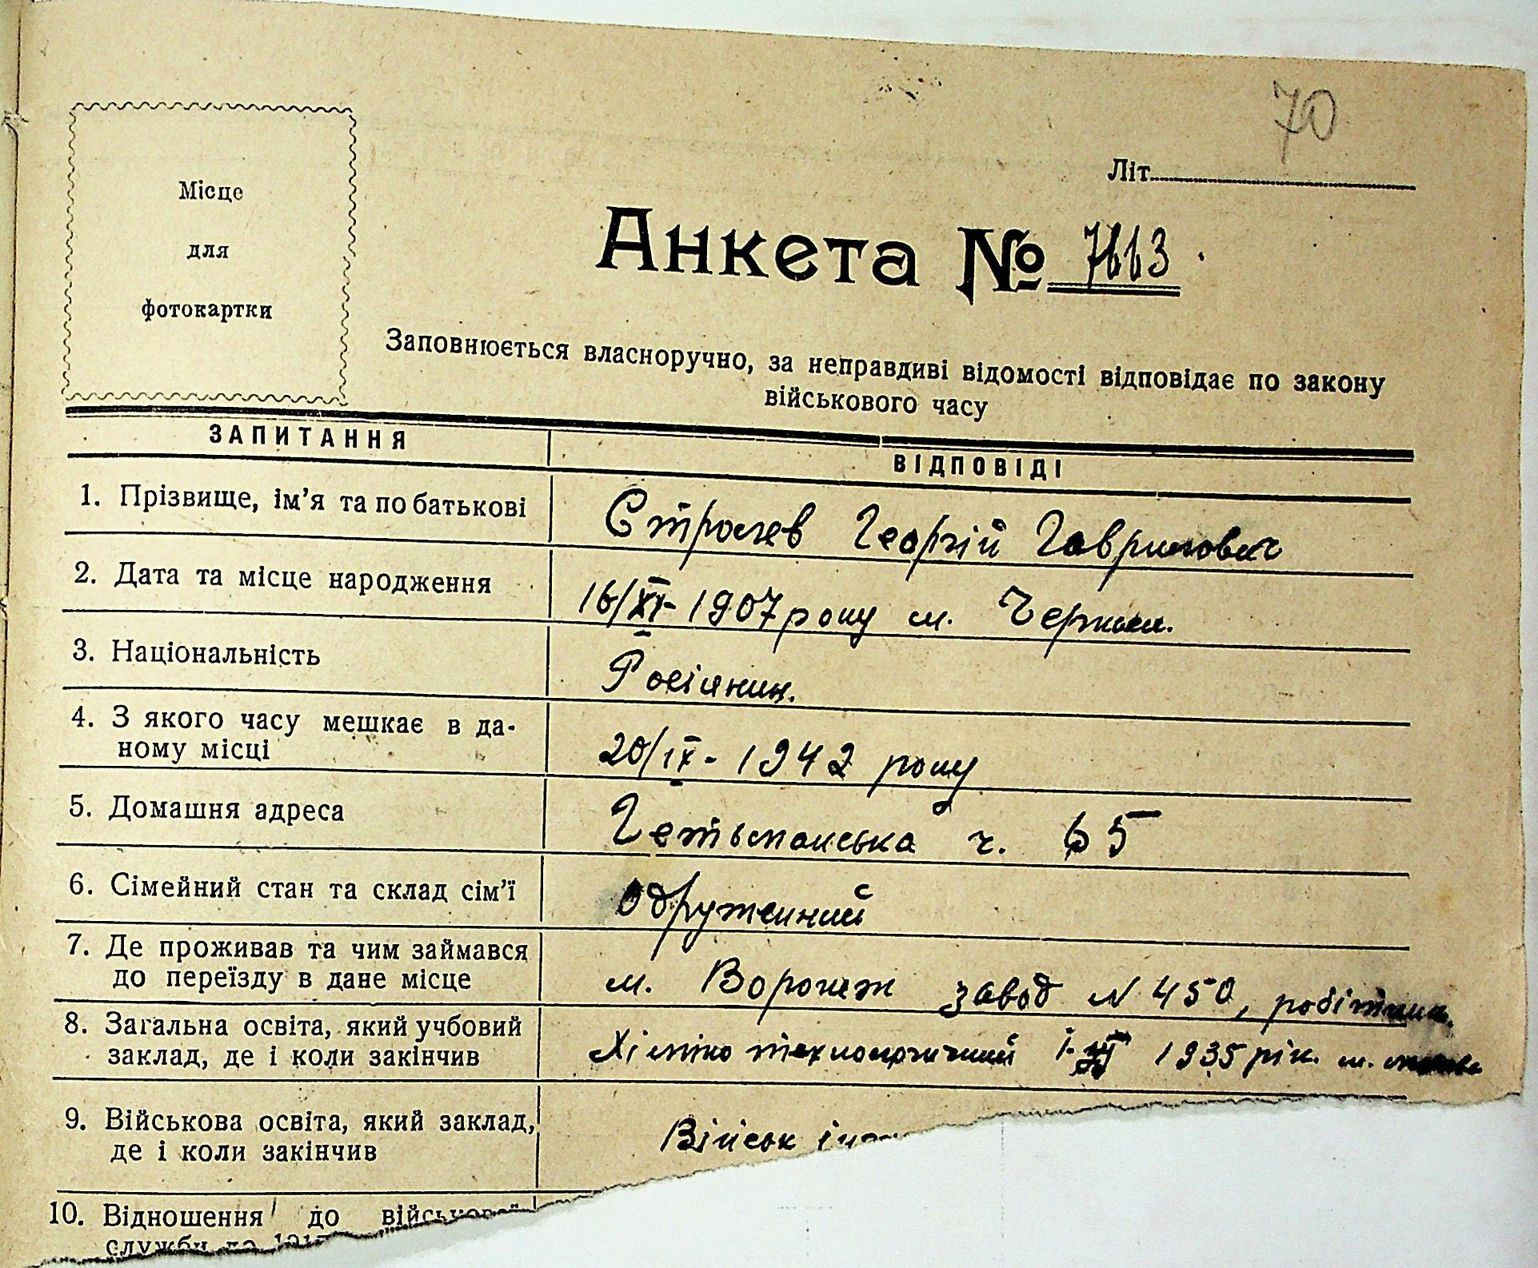 70
Літ
Місце
для
фотокартки
Анкета № 7663
Заповнюється власноручно, за неправдиві відомості відповідає по закону
військового часу
ЗАПИТАННЯ ВІДПОВІДІ
1. Прізвище, ім’я та по батькові Георгій Гаврилович
2. Дата та місце народження 16/XI-1907 року м.
3. Національність Росіянин.
4. З якого часу мешкає в да-
ному місці 20/IX-1942 року
5. Домашня адреса Гетьманська ч. 65
6. Сімейний стан та склад сім’ї Одружений
7. Де проживав та чим займався
до переїзду в дане місце м. Воронеж завод N 450, робітник.
8. Загальна освіта, який учбовий
заклад, де і коли закінчив Хіміко технологичний 1935 рік. м.
9. Військова освіта, який заклад,
де і коли закінчив Військ
10. Відношення до військової
служби до